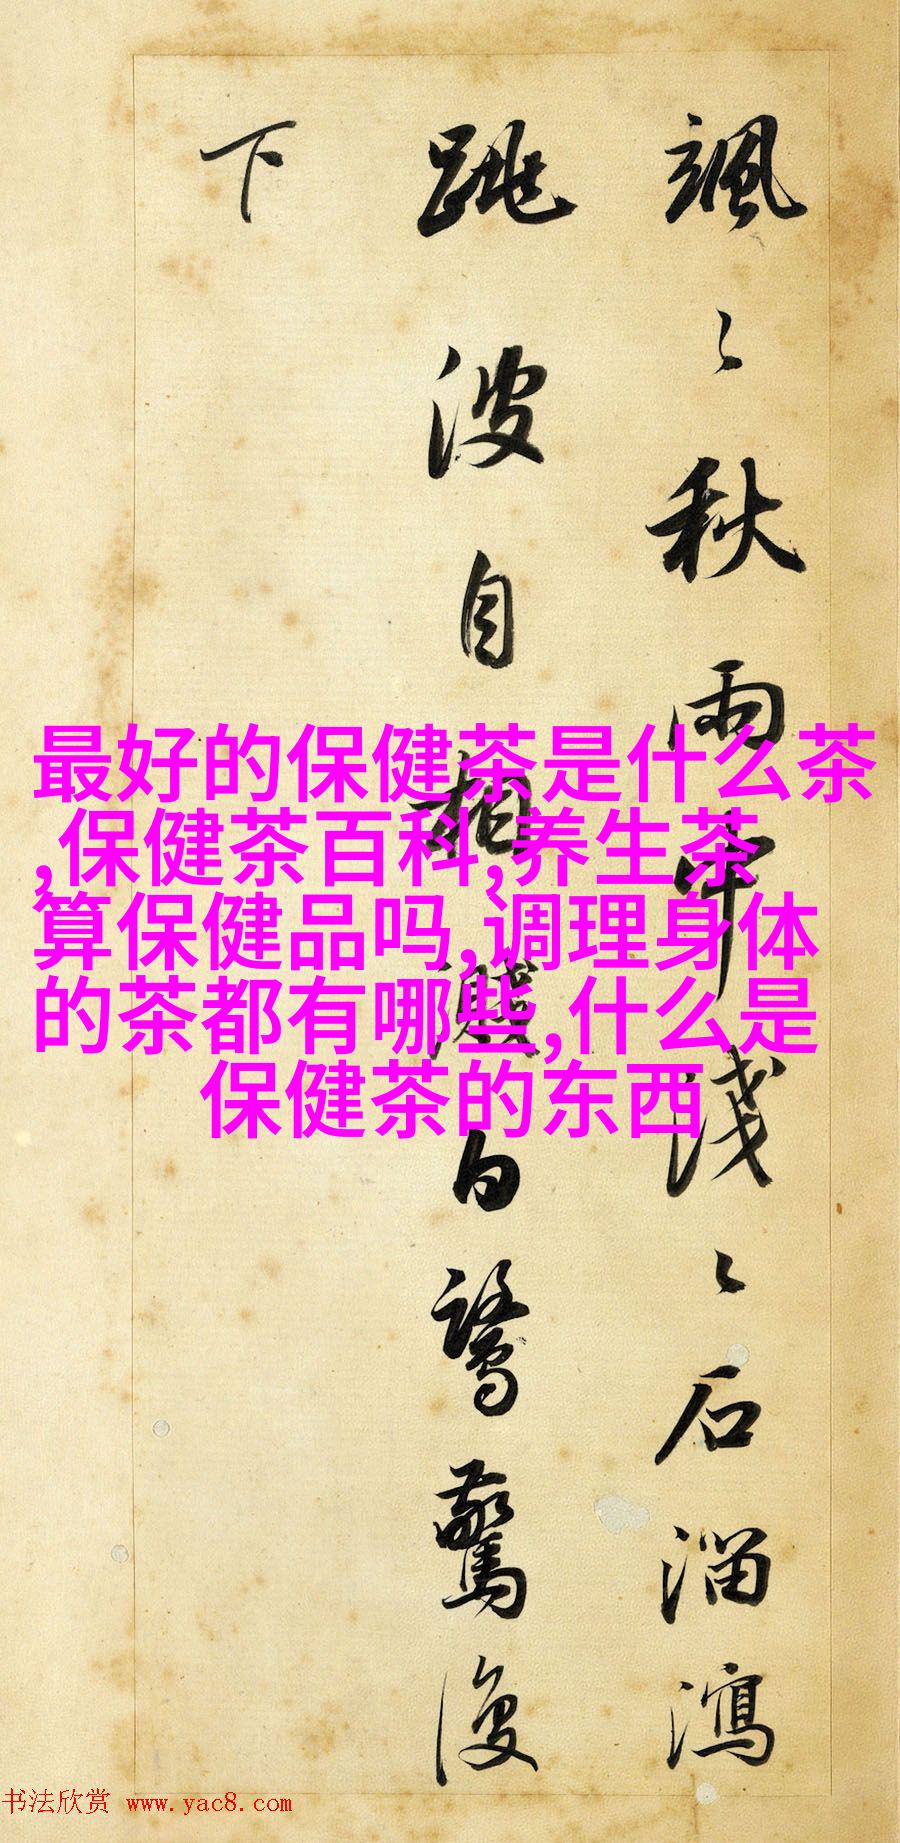 颯〻秋雨中淺〻石溜瀉
跳波自相濺白鷺驚復
下
最好的保健茶是什么茶
,保健茶百科,养生茶
算保健品吗,调理身体
的茶都有哪些,什么是
保健茶的东西
书法欣赏 www.yac8.com